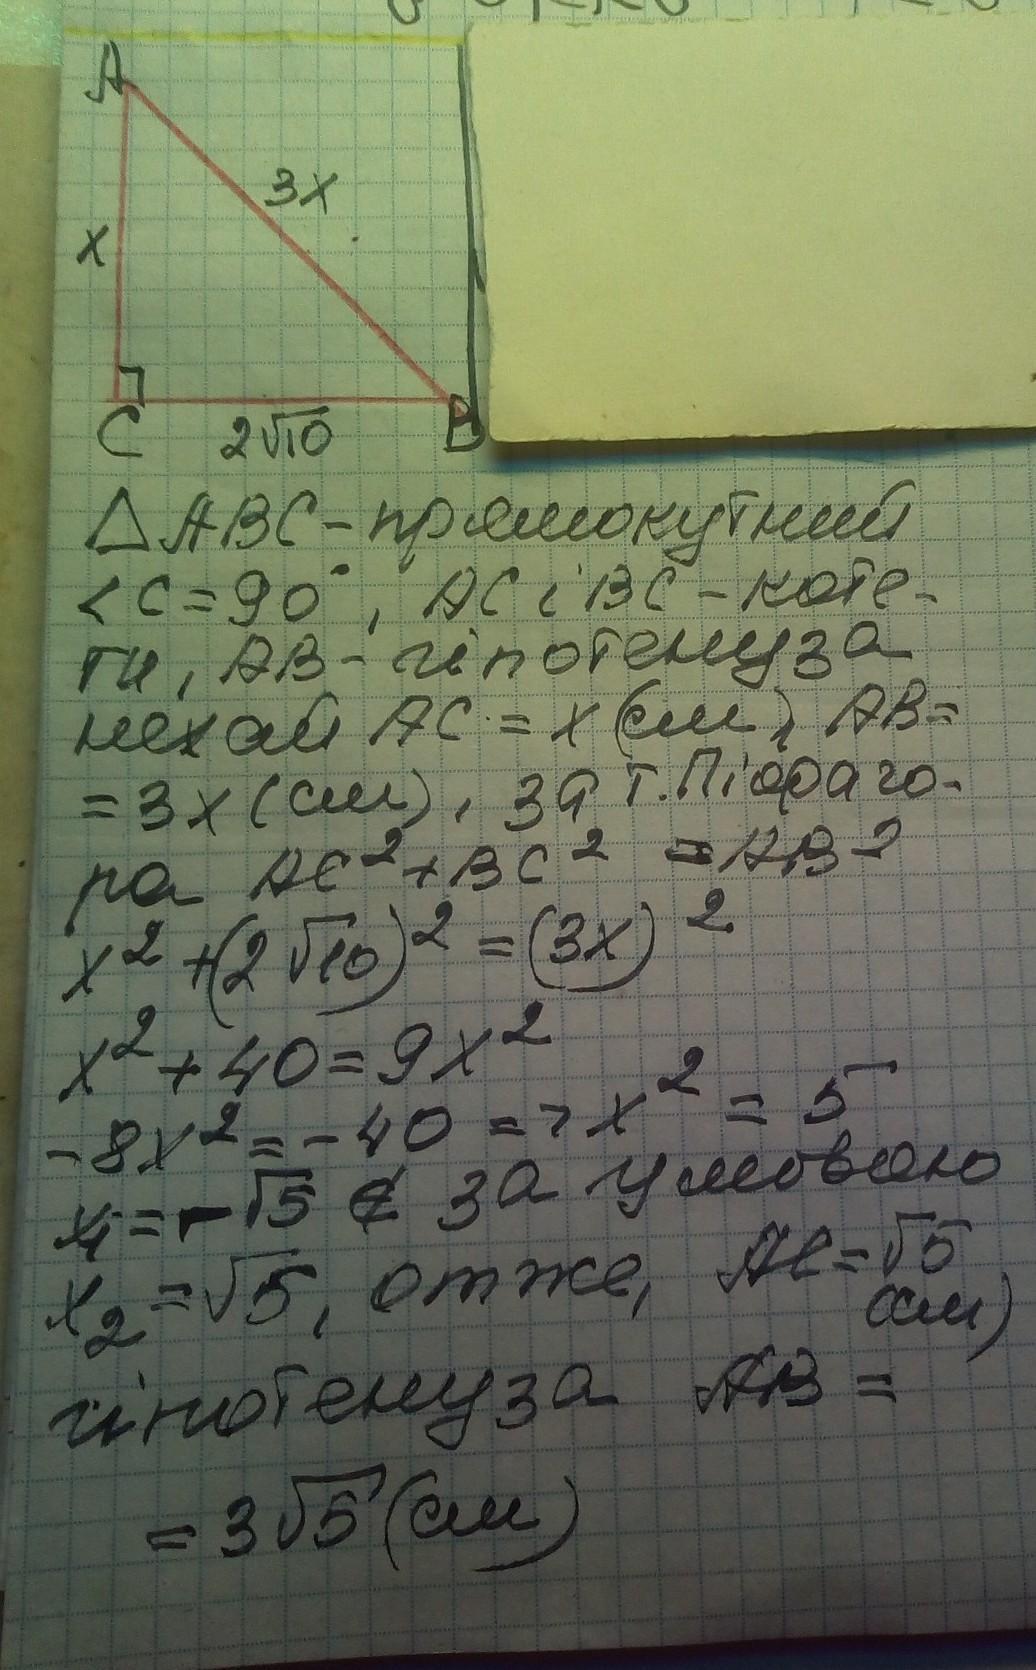 A
3x
x
C
2√10
B
△ABC-прямокутний
<C=90°, AC і BC-кате-
ти, AB-гіпотенуза
нехай AC = x (см), AB=
=3x (см), за т.Піфаго-
ра AC²+BC² = AB²
x²+(2√10)²=(3x)²
x²+40=9x²
-8x²=-40 => x² = 5
x₁=-√5 ∉ за умовою
x₂=√5, отже, AC=√5
(см)
гіпотенуза AB=
=3√5 (см)